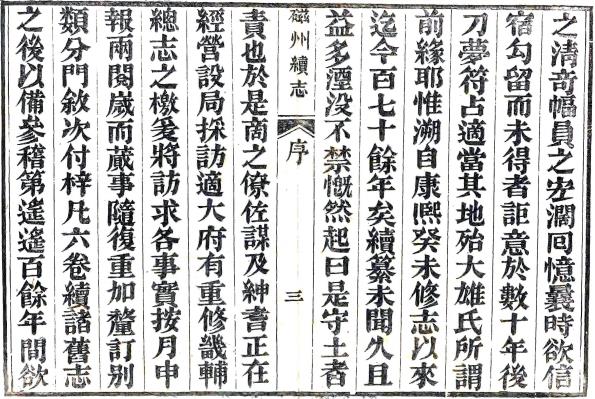 之清奇幅員之宏濶囘憶曩時欲信
宿勾留而未得者詎意於數十年後
刀夢符占適當其地殆大雄氏所謂
前緣耶惟溯自康熙癸未修志以來
迄今百七十餘年矣續纂未聞久且
益多湮没不禁慨然起曰是守土者
磁州續志
序
三
責也於是商之僚佐謀及紳耆正在
經營設局採訪適大府有重修畿輔
總志之檄爰將訪求各事實按月申
報兩閱歲而蕆事隨復重加釐訂別
類分門敘次付梓凡六卷續諸舊志
之後以備參稽第遙遙百餘年間欲